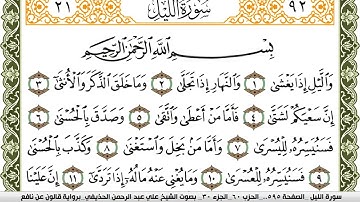 ٩٢ سُورَةُ الَّيْلِ ٢١
بِسْمِ اللَّهِ الرَّحْمَٰنِ الرَّحِيمِ
وَالَّيْلِ إِذَا يَغْشَىٰ ١ وَالنَّهَارِ إِذَا تَجَلَّىٰ ٢ وَمَا خَلَقَ الذَّكَرَ وَالْأُنثَىٰ ٣
إِنَّ سَعْيَكُمْ لَشَتَّىٰ ٤ فَأَمَّا مَنْ أَعْطَىٰ وَاتَّقَىٰ ٥ وَصَدَّقَ بِالْحُسْنَىٰ ٦
فَسَنُيَسِّرُهُ لِلْيُسْرَىٰ ٧ وَأَمَّا مَنْ بَخِلَ وَاسْتَغْنَىٰ ٨ وَكَذَّبَ بِالْحُسْنَىٰ
٩ فَسَنُيَسِّرُهُ لِلْعُسْرَىٰ ١٠ وَمَا يُغْنِي عَنْهُ مَالُهُ إِذَا تَرَدَّىٰ ١١ إِنَّ عَلَيْنَا
سورة الليل الصفحة ٥٩٥ الحزب ٦٠ الجزء ٣٠ بصوت الشيخ علي عبد الرحمن الحذيفي برواية قالون عن نافع